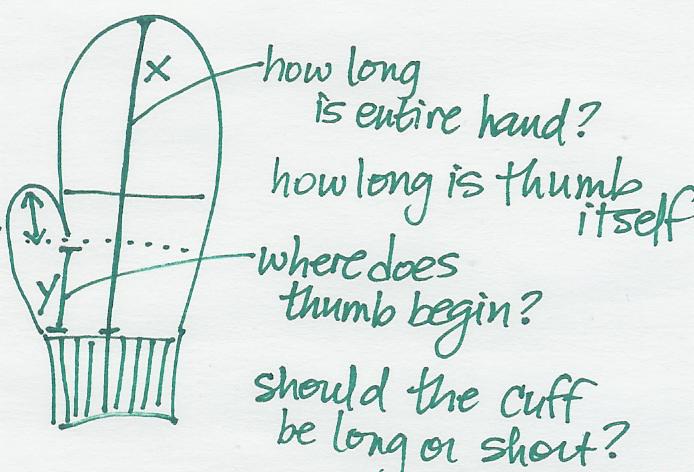 X
how long
is entire hand?
how long is thumb
itself
where does
thumb begin?
y
should the cuff
be long or short?